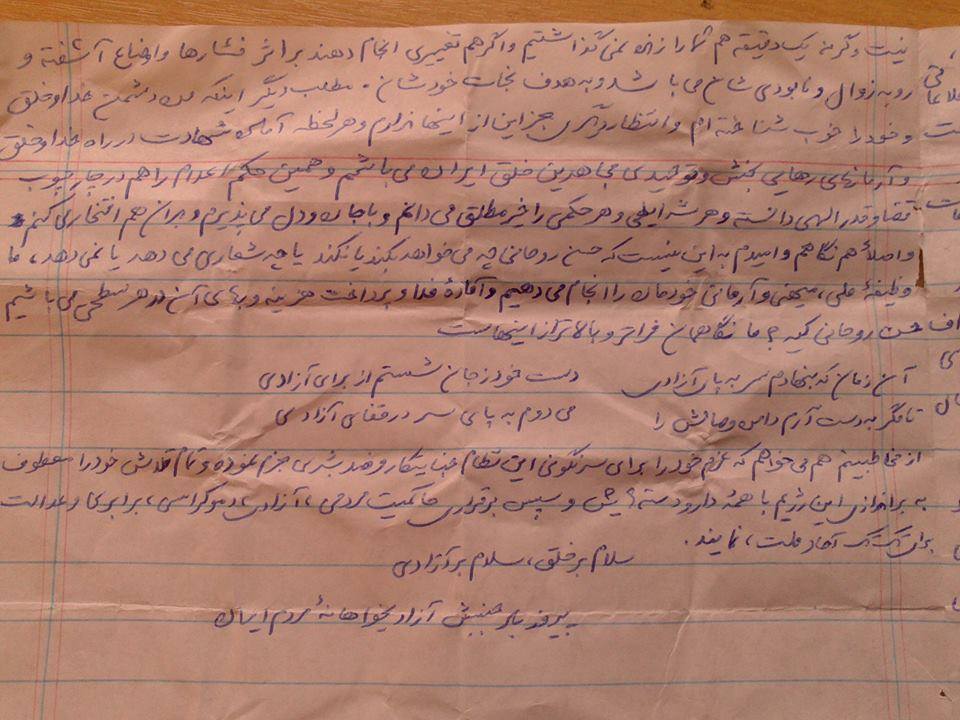 نیست وگرنه یک دقیقه هم شما را زنده نمی گذاشتیم و اگر هم تغییری انجام دهند بر اثر فشارها و اوضاع آشفته و
رو به زوال و نابودی شان می باشد و به هدف نجات خودشان. مطلب دیگر اینکه من دشمن خدا و خلق
و خود را خوب شناخته ام و انتظار دیگری جز این از اینها ندارم و هر لحظه آماده شهادت در راه خدا و خلق
و آرمانهای رهایی بخش و توحیدی مجاهدین خلق ایران می باشم و همین حکم اعدام را هم در چارچوب
قضا و قدر الهی دانسته و هر شرایطی و هر حکمی را خیر مطلق می دانم و با جان و دل می پذیرم و بر آن هم افتخار می کنم
و اصلاً هم نگاهم و امیدم به این نیست که حسن روحانی چه می خواهد بکند یا نکند یا چه شعاری می دهد یا نمی دهد، ما
وظیفهٔ ملی، میهنی و آرمانی خودمان را انجام می دهیم و آمادهٔ فدا و پرداخت هزینه و بهای آن در هر سطحی می باشیم
حسن روحانی کیه؟ ما نگاهمان فراتر و بالاتر از اینهاست
آن زمان که بنهادم سر به پای آزادی دست خود ز جان شستم از برای آزادی
تا مگر به دست آرم دامن وصالش را می دوم به پای سر در قفای آزادی
از مخاطبینم هم می خواهم که عزم خود را برای سرنگونی این نظام جنایتکار و ضد بشری جزم نموده و تمام تلاش خود را معطوف
به براندازی این رژیم با همهٔ دار و دسته هایش و سپس برقراری حاکمیت مردمی، آزادی، دموکراسی، برابری و عدالت
برای تک تک آحاد ملت، نمایند.
سلام بر خلق، سلام بر آزادی
پیروز باد جنبش آزادیخواهانهٔ مردم ایران